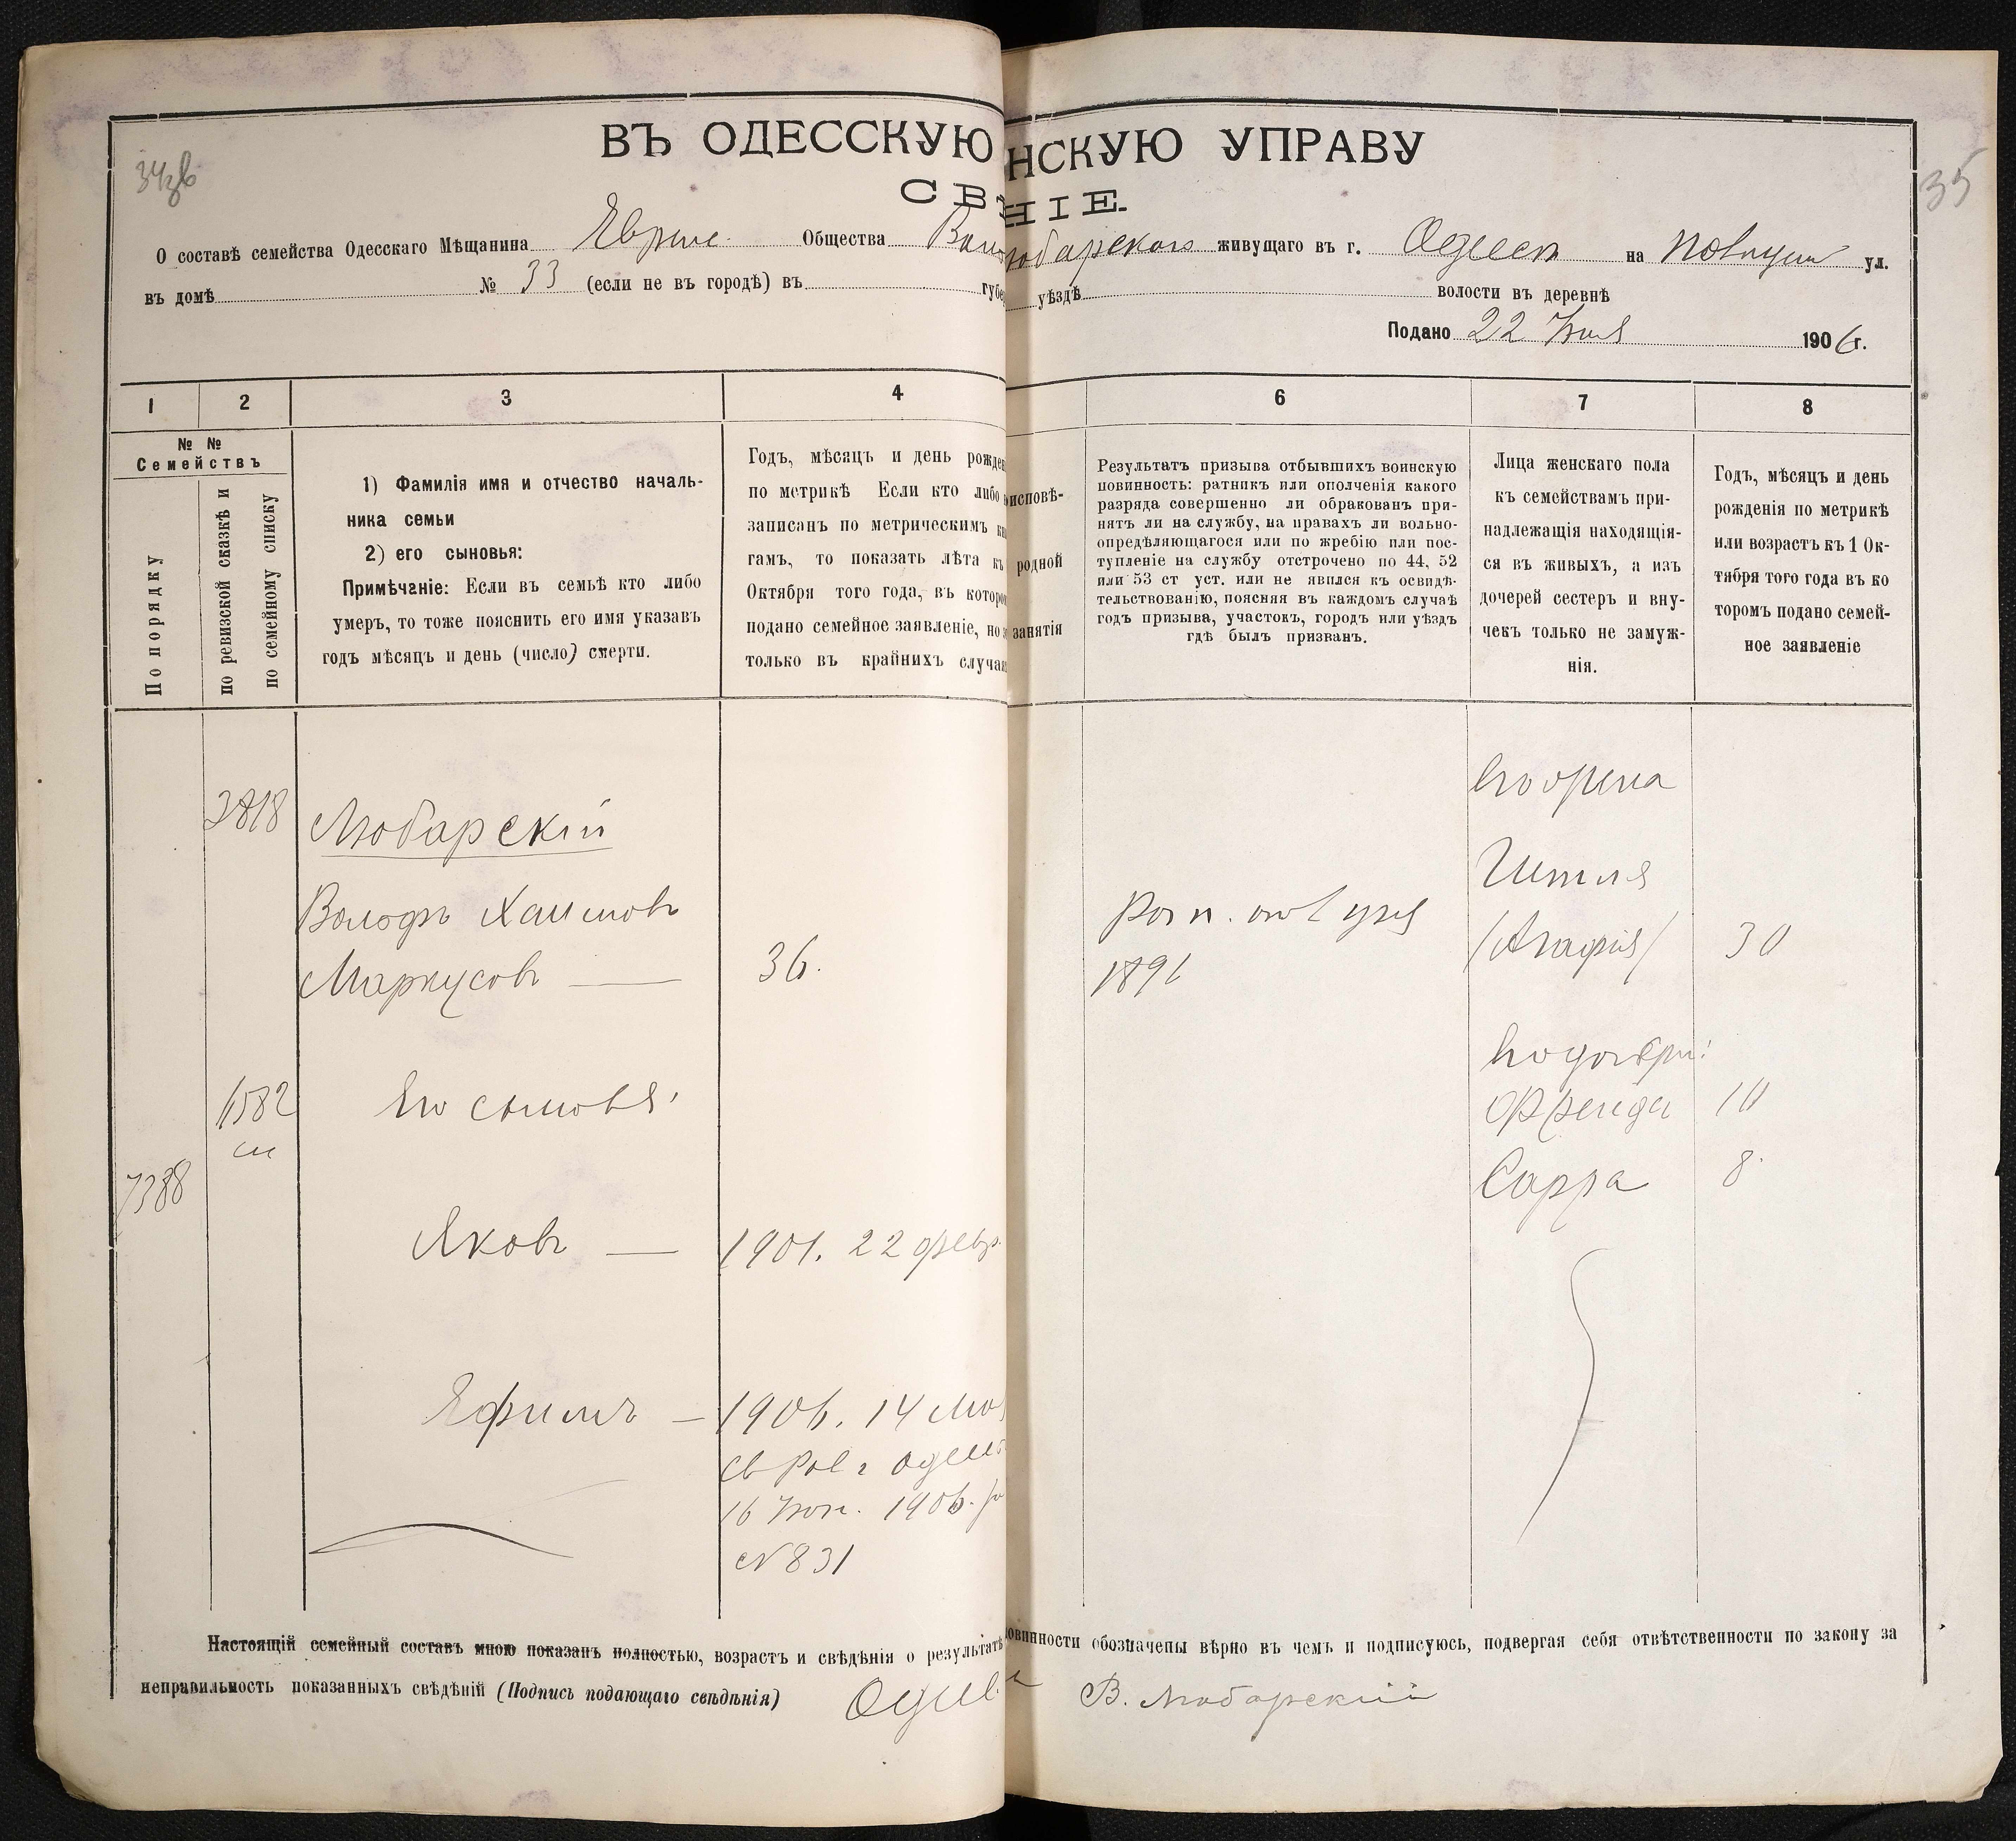 ВЪ ОДЕССКУЮ НСКУЮ УПРАВУ
СВѢ НІЕ.
35
О составѣ семейства Одесскаго Мѣщанина Еврейс. Общества Воль Любарскаго живущаго въ г. Одессѣ на ул.
въ домѣ № 33 (если не въ городѣ) въ губе уѣздѣ волости въ деревнѣ
Подано 22 1906 г.
1 2 3 4 6 7 8
№ №
Семействъ
По порядку
по ревизской сказкѣ и
по семейному списку
1) Фамилія имя и отчество началь-
ника семьи
2) его сыновья:
Примѣчаніе: Если въ семьѣ кто либо
умеръ, то тоже пояснить его имя указавъ
годъ мѣсяцъ и день (число) смерти.
Годъ, мѣсяцъ и день рожден
по метрикѣ Если кто либо
записанъ по метрическимъ кни
гамъ, то показать лѣта къ
Октября того года, въ которо
подано семейное заявленіе, но э
только въ крайнихъ случая
исповѣ-
родной
занятія
Результатъ призыва отбывшихъ воинскую
повинность: ратникъ или ополченія какого
разряда совершенно ли обракованъ при-
нятъ ли на службу, на правахъ ли вольно-
опредѣляющагося или по жребію или пос-
тупленіе на службу отстрочено по 44, 52
или 53 ст уст. или не явился къ освидѣ-
тельствованію, поясняя въ каждомъ случаѣ
годъ призыва, участокъ, городъ или уѣздъ
гдѣ былъ призванъ.
Лица женскаго пола
къ семействамъ при-
надлежащія находящія-
ся въ живыхъ, а изъ
дочерей сестеръ и вну-
чекъ только не замуж-
нія.
Годъ, мѣсяцъ и день
рожденія по метрикѣ
или возрастъ къ 1 Ок-
тября того года въ ко
торомъ подано семей-
ное заявленіе
3818 Любарскій
Вольфъ Хаимовъ
Маркусовъ — 36.
1582
си
7388
Его сыновья:
Яковъ — 1901. 22 февр.
Ефимъ — 1906. 14 Мая
16 Іюн. 1906.
№ 831
1891
Его жена
Гитля
/Агафія/ 30
Его дочери:
Фрейда 10
Сарра 8
Настоящій семейный составъ мною показанъ полностью, возрастъ и свѣдѣнія о результатѣ овинности обозначены вѣрно въ чемъ и подписуюсь, подвергая себя отвѣтственности по закону за
неправильность показанныхъ свѣдѣній (Подпись подающаго свѣдѣнія) В. Любарскій